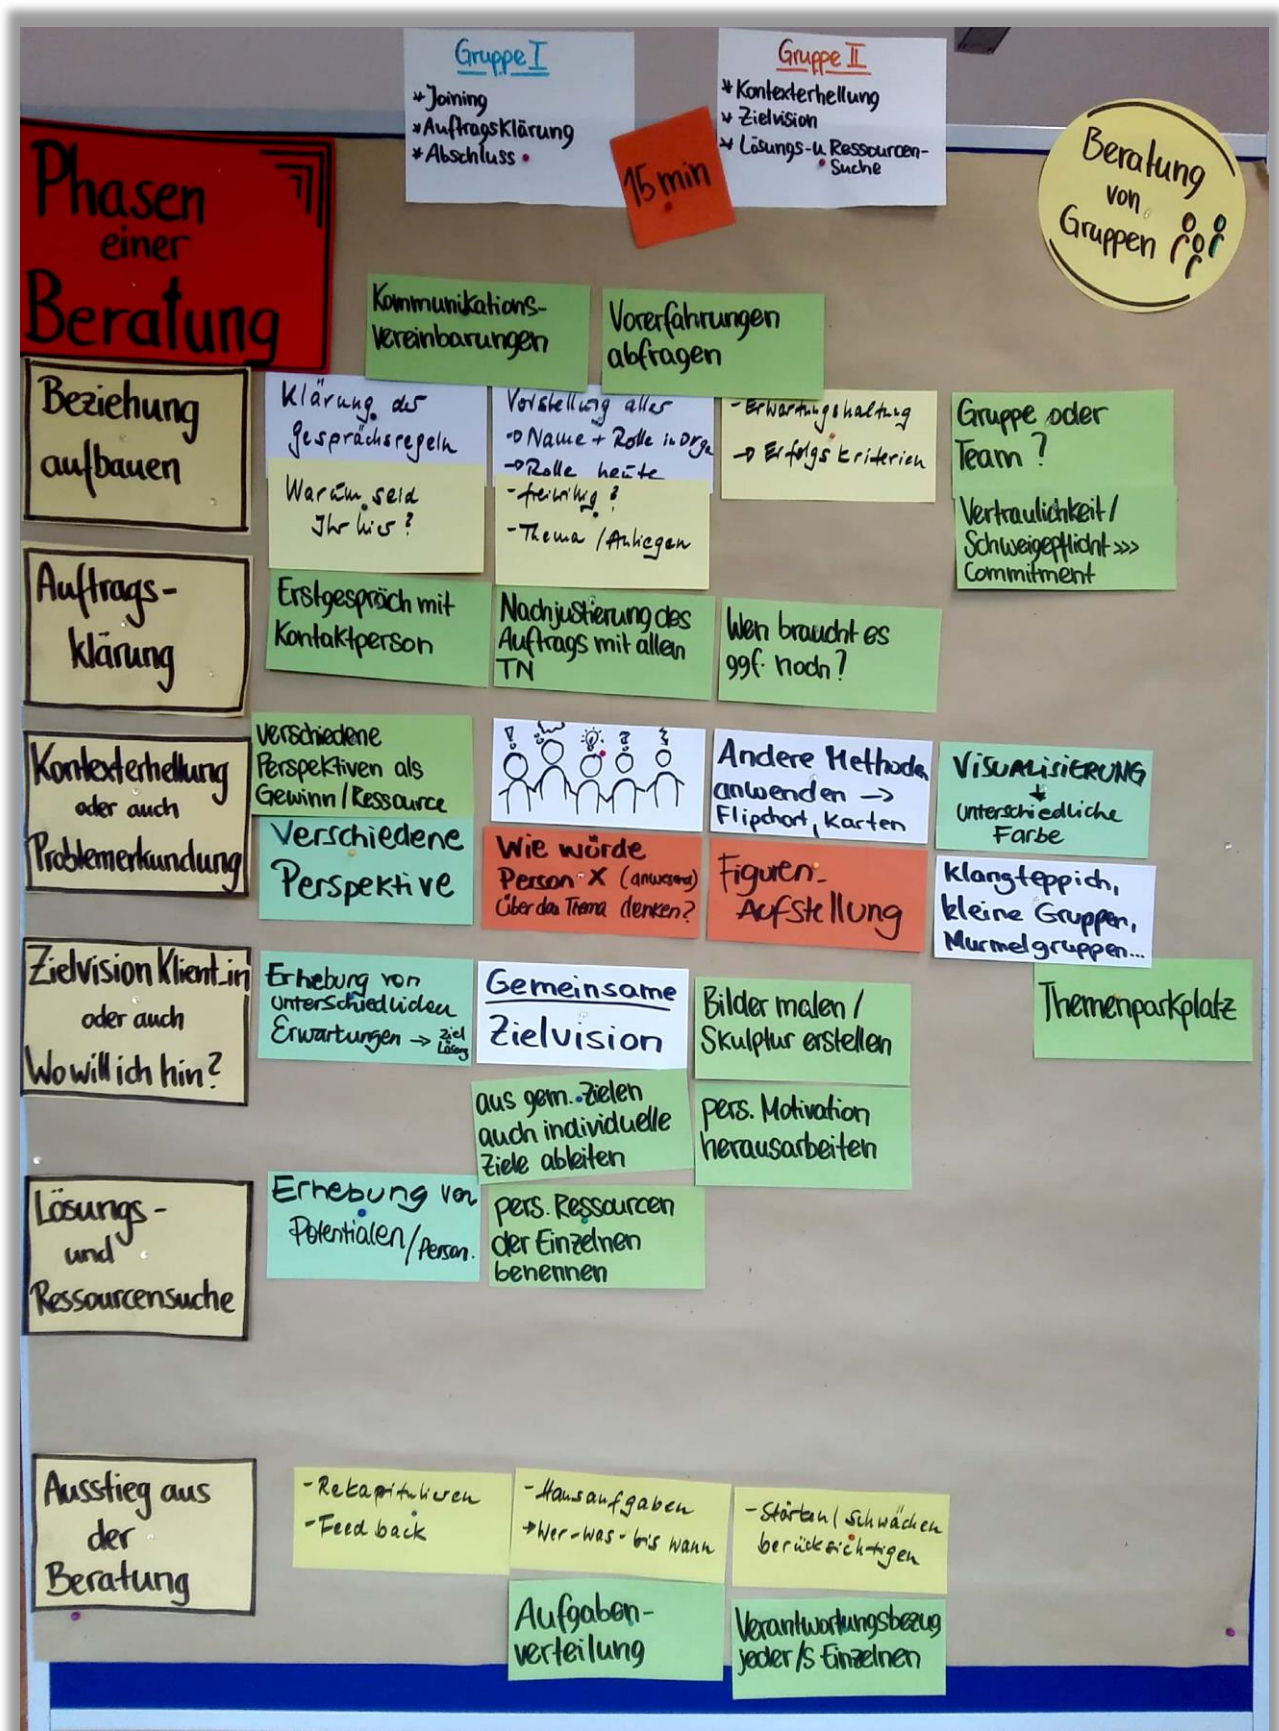 Gruppe I
* Joining
* Auftragsklärung
* Abschluss
Gruppe II
* Kontexterhellung
* Zielvision
* Lösungs- u. Ressourcen-
Suche
15 min
Beratung
von
Gruppen
Phasen
einer
Beratung
Kommunikations-
vereinbarungen
Vorerfahrungen
abfragen
Beziehung
aufbauen
Klärung der
Gesprächsregeln
Vorstellung aller
→ Name + Rolle in Orga
→ Rolle heute
- Erwartungshaltung
→ Erfolgskriterien
Gruppe oder
Team?
Warum seid
Ihr hier?
- freiwillig?
- Thema / Anliegen
Vertraulichkeit/
Schweigepflicht >>>
Commitment
Auftrags-
klärung
Erstgespräch mit
Kontaktperson
Nachjustierung des
Auftrags mit allen
TN
Wen braucht es
ggf. noch?
Kontexterhellung
oder auch
Problemerkundung
verschiedene
Perspektiven als
Gewinn/Ressource
! ? 
Andere Methoden
anwenden →
Flipchart, Karten
VISUALISIERUNG
unterschiedliche
Farbe
Verschiedene
Perspektive
Wie würde
Person X (anwesend)
über das Thema denken?
Figuren-
Aufstellung
Klangteppich,
kleine Gruppen,
Murmelgruppen...
Zielvision Klient_in
oder auch
Wo will ich hin?
Erhebung von
unterschiedlichen
Erwartungen → Ziel
Lösung
Gemeinsame
Zielvision
Bilder malen /
Skulptur erstellen
Themenparkplatz
aus gem. Zielen
auch individuelle
Ziele ableiten
pers. Motivation
herausarbeiten
Lösungs-
und
Ressourcensuche
Erhebung von
Potentialen/Person.
pers. Ressourcen
der Einzelnen
benennen
Ausstieg aus
der
Beratung
- Rekapitulieren
- Feedback
- Hausaufgaben
→ Wer-was-bis wann
- Stärken/Schwächen
berücksichtigen
Aufgaben-
verteilung
Verantwortungsbezug
jeder/s Einzelnen